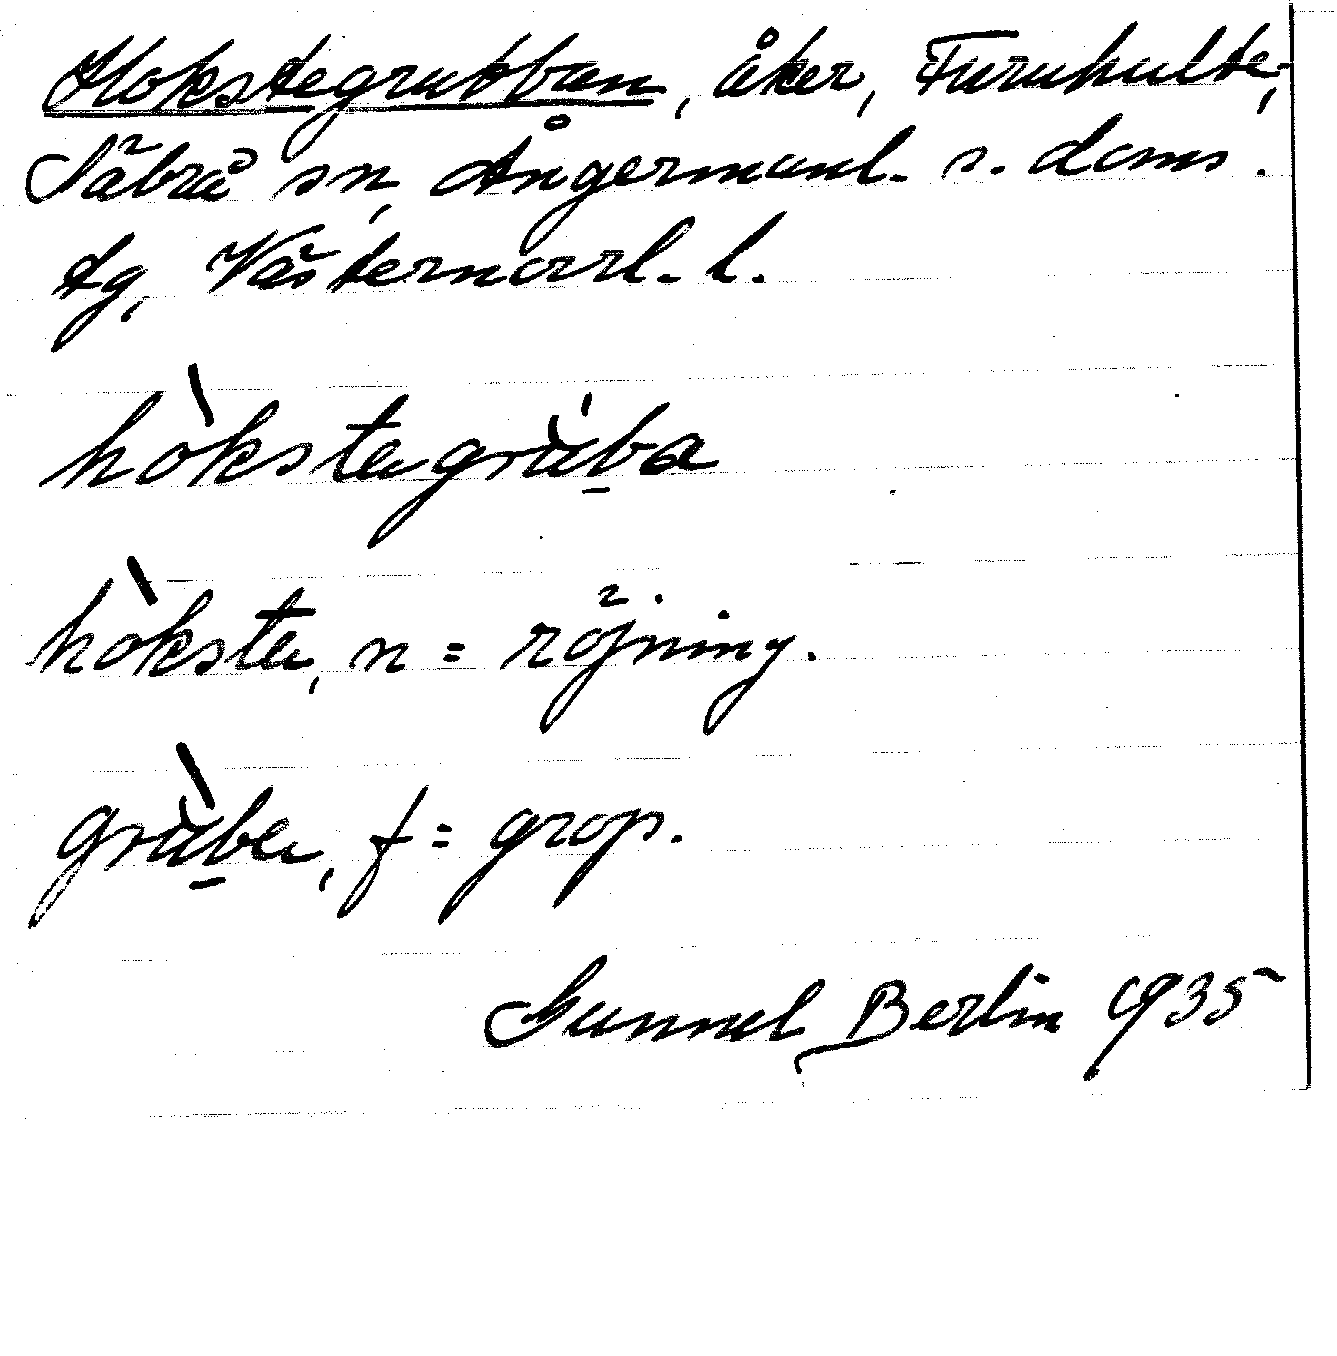 Hokstegrubban, åker, Furuhulte,
Säbrå sn, Ångermanl. s. doms.
tg, Västernorrl. l.
hòkstegrùba
hòkste, n = röjning.
grùbe, f = grop.
Gunnel Berlin 1935